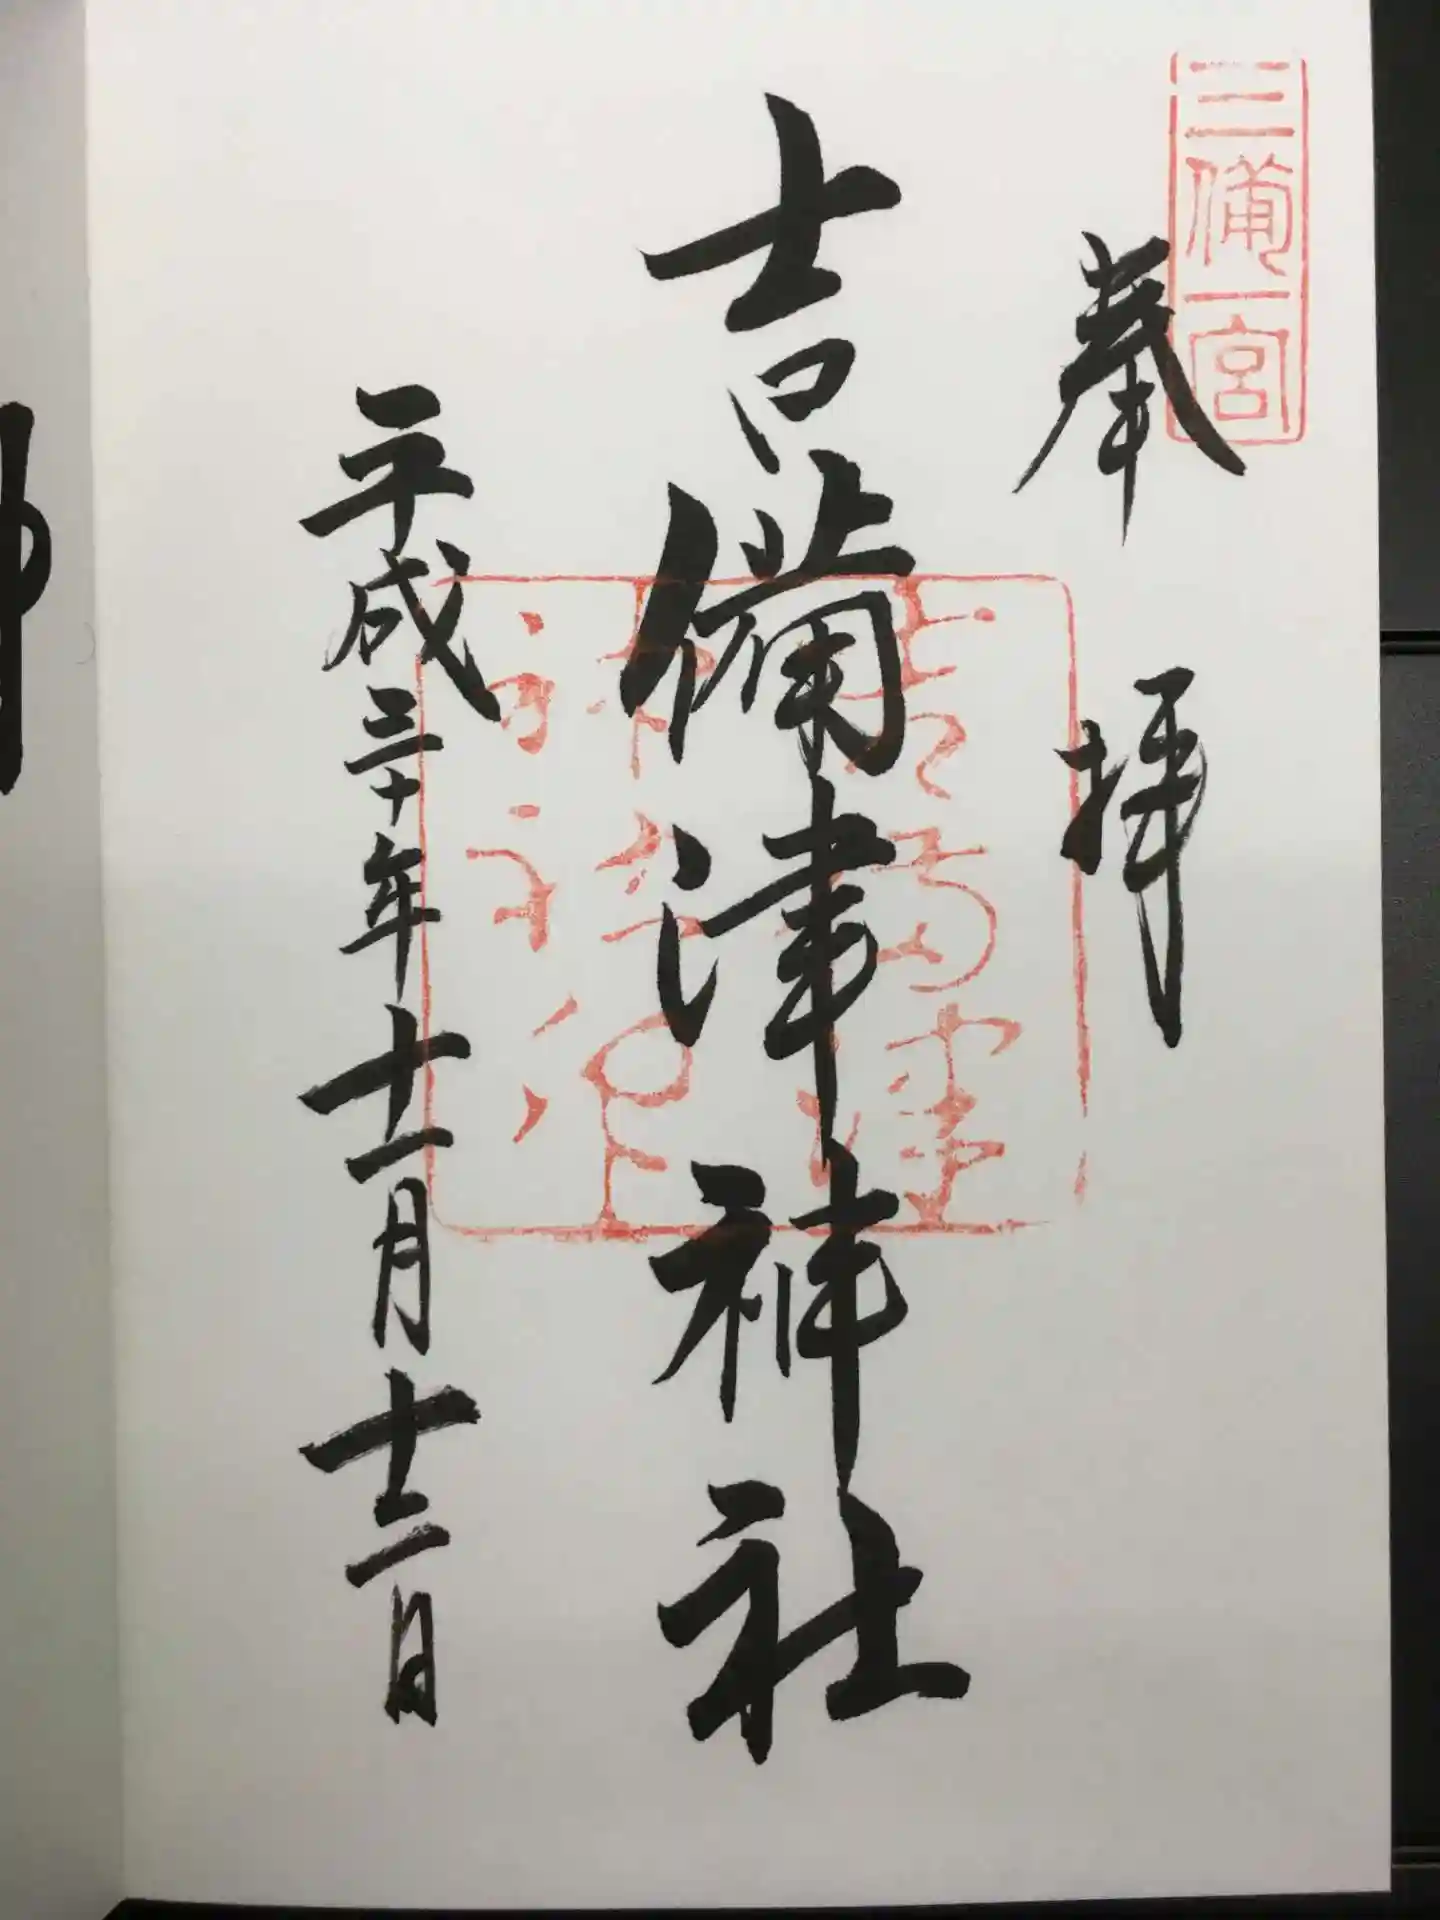 三備一宮
奉拝
吉備津神社
平成三十年十一月十二日